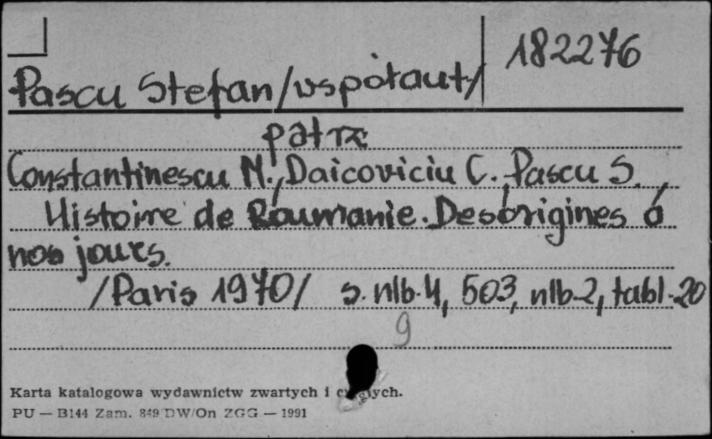 182276
Pascu Stefan/współaut/
patrz
Constantinescu M., Daicoviciu C., Pascu S.
Histoire de Roumanie. Des origines à
nos jours.
/Paris 1970/ s. nlb. 4, 503, nlb. 2, tabl. 20
9
Karta katalogowa wydawnictw zwartych i ciągłych.
PU — B144 Zam. 849 DW/On ZGG — 1991